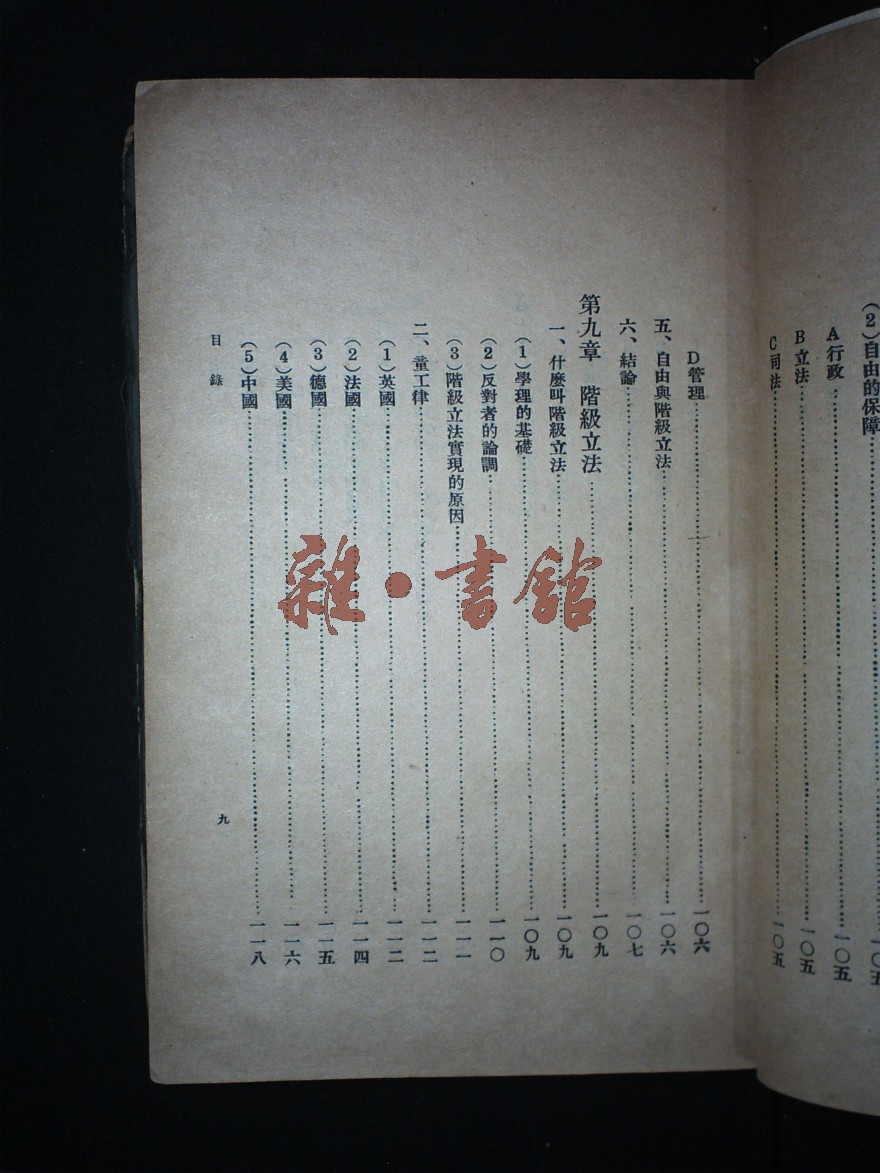 (2)自由的保障……一〇五
A行政……一〇五
B立法……一〇五
C司法……一〇五
D管理……一〇六
五、自由與階級立法……一〇六
六、結論……一〇七
第九章 階級立法……一〇九
一、什麼叫階級立法……一〇九
(1)學理的基礎……一〇九
(2)反對者的論調……一一〇
(3)階級立法實現的原因……一一一
二、童工律……一一二
(1)英國……一一二
(2)法國……一一四
(3)德國……一一五
(4)美國……一一六
(5)中國……一一八
目錄
九
雜·書館